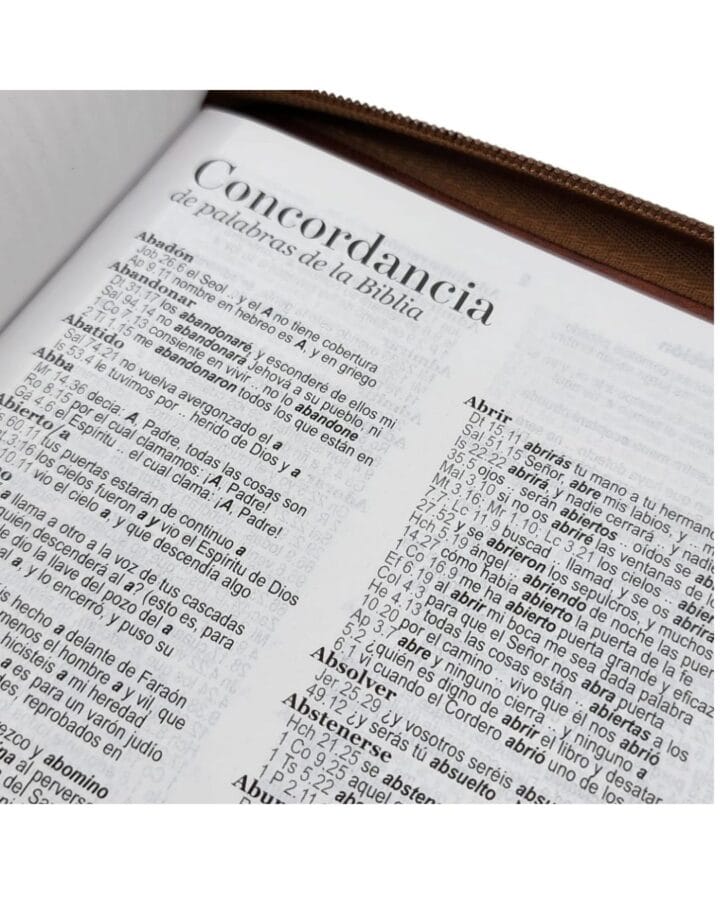 Concordancia
de palabras de la Biblia
Abadón
Job 26.6 el Seol .. y el A no tiene cobertura
Ap 9.11 nombre en hebreo es A, y en griego
Abandonar
Dt 31.17 los abandonaré, y esconderé de ellos mi
Sal 94.14 no abandonará Jehová a su pueblo, ni
1 Co 7.13 no consiente en vivir .. no lo abandone
2 Ti 1.15 me abandonaron todos los que están en
Abatido
Sal 74.21 no vuelva avergonzado el a
Is 53.4 le tuvimos por .. herido de Dios y a
Abba
Mr 14.36 decía: A, Padre, todas las cosas son
Ro 8.15 por el cual clamamos: ¡A, Padre!
Gá 4.6 el Espíritu .. el cual clama: ¡A, Padre!
Abierto/a
60.11 tus puertas estarán de continuo a
3.16 los cielos fueron a y vio el Espíritu de Dios
10.11 vio el cielo a, y que descendía algo
a llama a otro a la voz de tus cascadas
quién descenderá al a? (esto es para
dio la llave del pozo del a
a, y lo encerró, y puso su
hecho a delante de Faraón
el hombre a y vil, que
hicisteis a mi heredad
a es para un varón judio
reprobados en
y abomino
al perverso
Abrir
Dt 15.11 abrirás tu mano a tu hermano
Sal 51.15 Señor, abre mis labios, y
Is 22.22 abrirá, y nadie cerrará
35.5 ojos .. serán abiertos .. oídos se
Mal 3.10 si no os abriré las ventanas de
Mt 3.16; Mr 1.10; Lc 3.21 los cielos
7.7; Lc 11.9 buscad .. llamad, y se os
27.52 y se abrieron los sepulcros, y muchos
Hch 5.19 ángel .. abriendo de noche las
14.27 cómo había abierto la puerta de la fe
1 Co 16.9 me ha abierto puerta grande y eficaz
Ef 6.19 al abrir mi boca me sea dada palabra
Col 4.3 para que el Señor nos abra puerta
He 4.13 todas las cosas están .. abiertas a los
10.20 por el camino .. vivo que él nos abrió
Ap 3.7 abre y ninguno cierra .. y ninguno
5.2 ¿quién es digno de abrir el libro y desatar
6.1 vi cuando el Cordero abrió uno de los
Absolver
Jer 25.29 ¿y vosotros seréis
49.12 ¿y serás tú absuelto
Abstenerse
Hch 21.25 se
1 Co 9.25 aquel
1 Ts 5.22
1 P 2.11